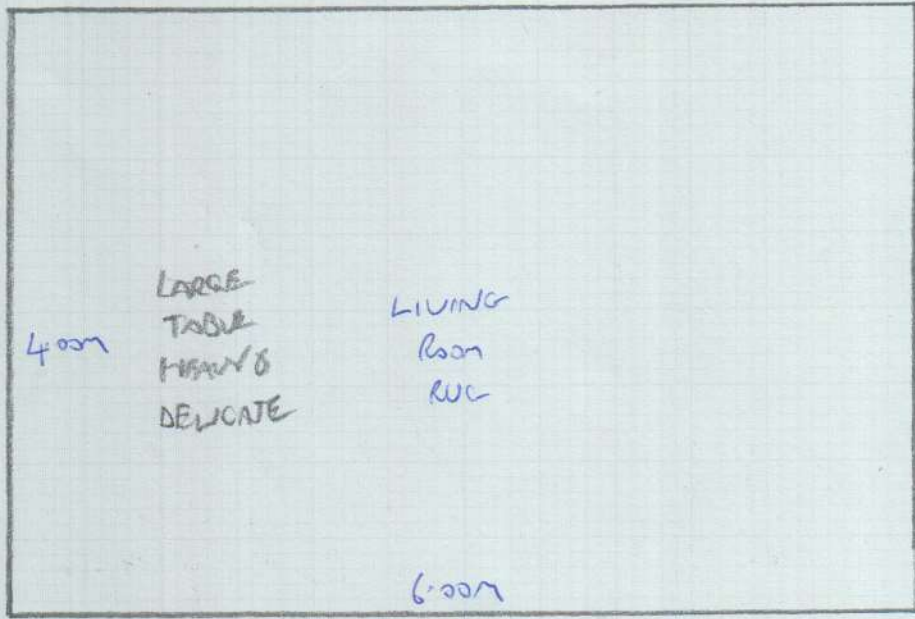 LARGE
TABLE
HEAVY &
DELICATE
4.00m
LIVING
ROOM
RUG
6.00m